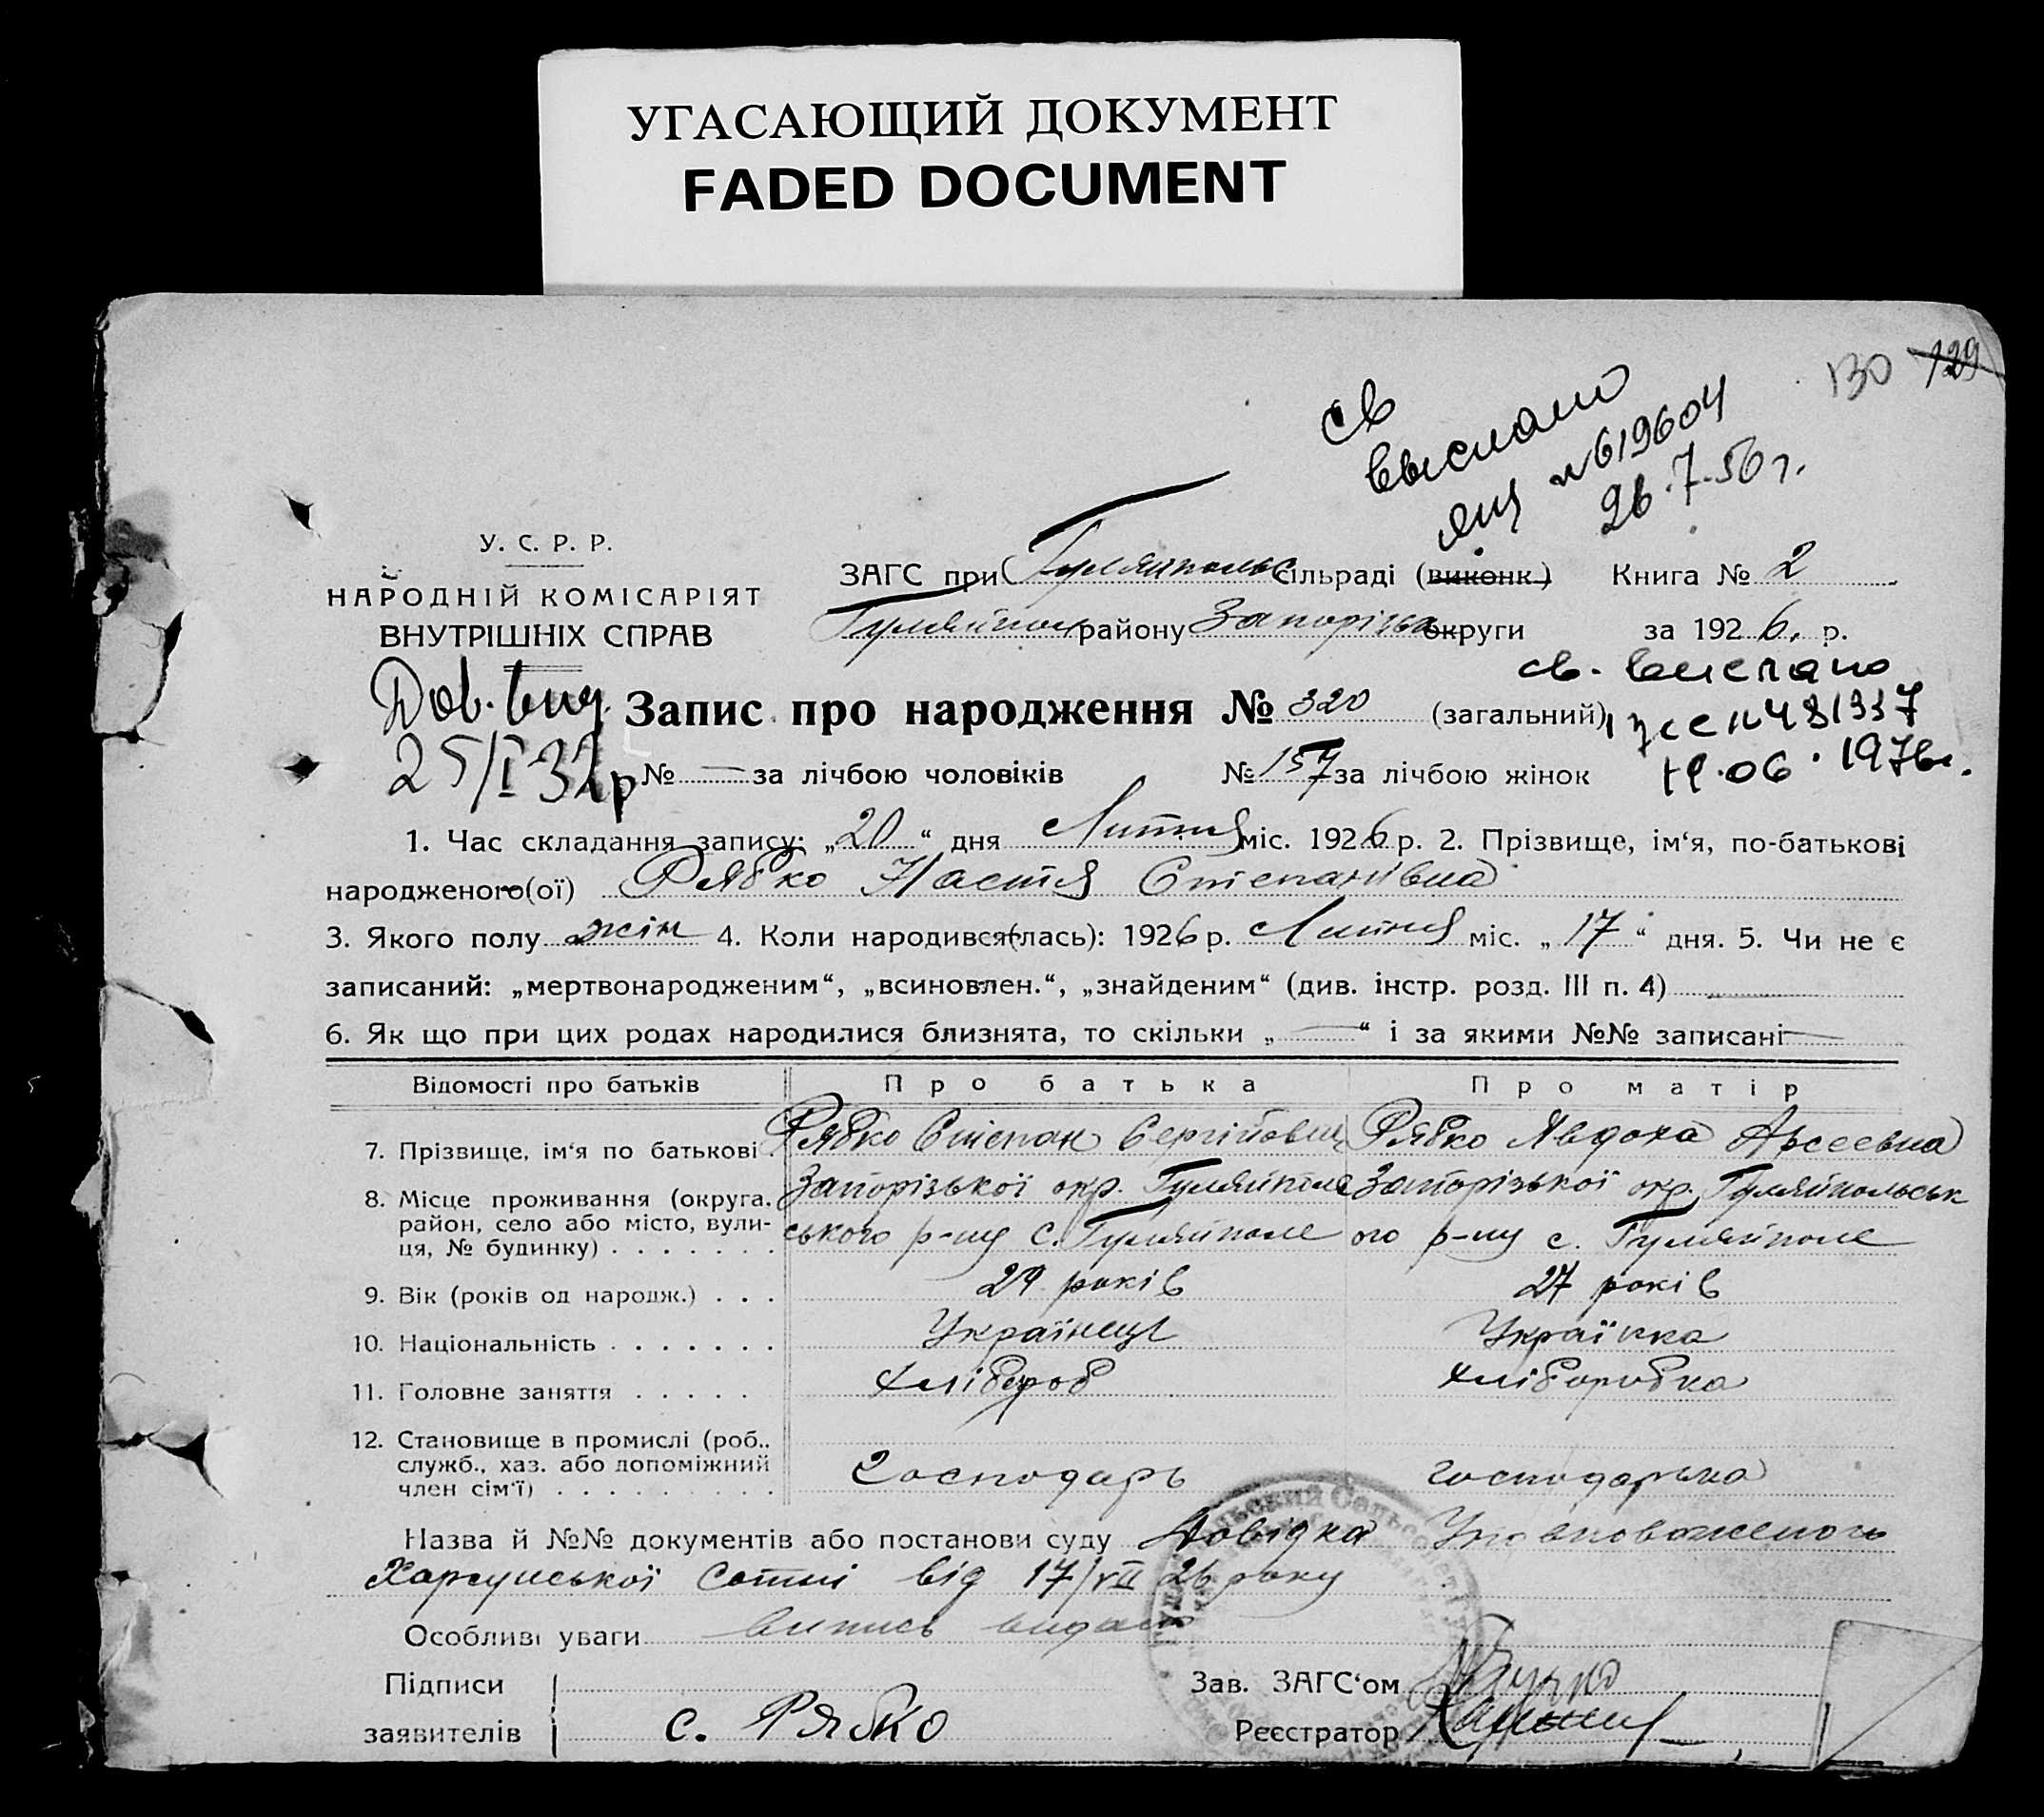 УГАСАЮЩИЙ ДОКУМЕНТ
FADED DOCUMENT
130 129
св
выслано
ЯЩ №619604
26.7.56 г.
У. С. Р. Р.
НАРОДНІЙ КОМІСАРІЯТ
ВНУТРІШНІХ СПРАВ
ЗАГС при Гуляйпольс сільраді (виконк.) Книга № 2
Гуляйпол району Запорізьк округи за 1926. р.
св. выслано
Дов. вид.
25/I 32р
Запис про народження № 320 (загальний)
№ — за лічбою чоловіків № 157 за лічбою жінок
06.1976г.
1. Час складання запису: „20“ дня Липня міс. 1926 р. 2. Прізвище, ім‘я, по-батькові
народженого(ої) Рябко Настя Степанівна
3. Якого полу жін 4. Коли народився(лась): 1926 р. Липня міс. „17“ дня. 5. Чи не є
записаний: „мертвонародженим“, „всиновлен.“, „знайденим“ (див. інстр. розд. III п. 4)
6. Як що при цих родах народилися близнята, то скільки „—“ і за якими №№ записані —
Відомості про батьків Про батька Про матір
7. Прізвище, ім‘я по батькові Рябко Степан Сергійович Рябко Явдоха Арсеевна
8. Місце проживання (округа, район, село або місто, вулиця, № будинку) Запорізької окр. Гуляйполь Запорізької окр. Гуляйпольськ
ського р-ну с. Гуляйполе ого р-ну с. Гуляйполе
9. Вік (років од народж.) 29 років 27 років
10. Національність Українець Українка
11. Головне заняття Хлібороб Хліборобка
12. Становище в промислі (роб., служб., хаз. або допоміжний член сім‘ї) Господарь господарька
Назва й №№ документів або постанови суду Довідка Уповноваженого
сотні від 17/VII 26 року
Особливі уваги випись видана
Підписи
заявителів с. Рябко
Зав. ЗАГС‘ом
Реєстратор